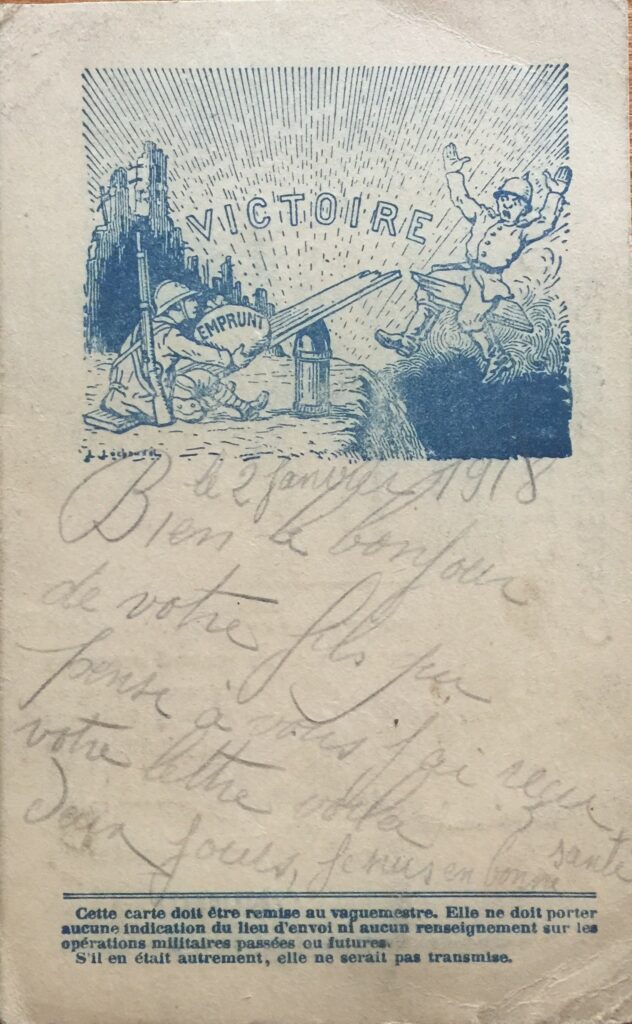 VICTOIRE
EMPRUNT
le 2 Janvier 1918
Bien le bonjour
de votre fils qui
pense à vous j'ai recu
votre lettre voila
Deux jours, je suis en bonne
santé
Cette carte doit être remise au vaguemestre. Elle ne doit porter
aucune indication du lieu d'envoi ni aucun renseignement sur les
opérations militaires passées ou futures.
S'il en était autrement, elle ne serait pas transmise.